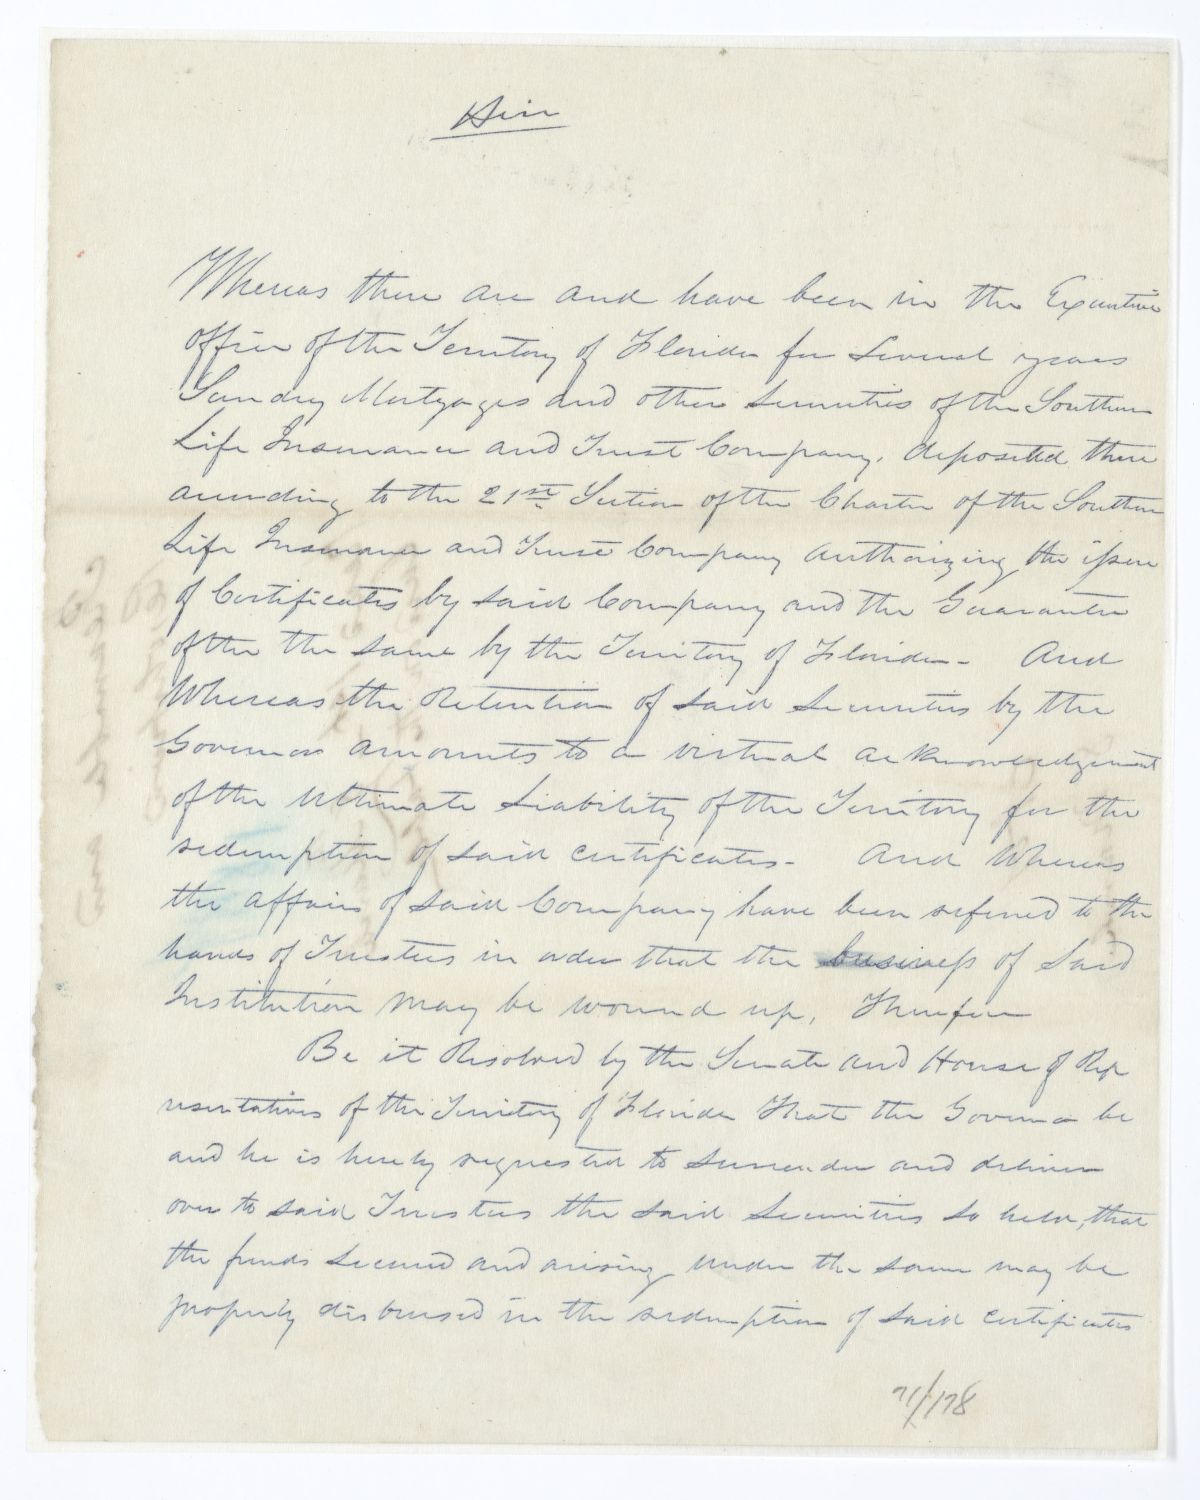 Whereas there are and have been in the Executive
office of the Territory of Florida for several years
Sundry Mortgages and other Securities of the Southern
Life Insurance and Trust Company, deposited there
according to the 21st Section of the Charter of the Southern
Life Insurance and Trust Company authorizing the issue
of Certificates by said Company and the Guarantee
of the the same by the Territory of Florida - And
Whereas the Retention of said Securities by the
Governor amounts to a virtual acknowledgement
of the ultimate liability of the Territory for the
redemption of said certificates - And Whereas
the affairs of said Company have been referred to the
hands of Trustees in order that the business of said
Institution may be wound up, Therefore
Be it Resolved by the Senate and House of Rep
resentatives of the Territory of Florida That the Governor be
and he is hereby requested to surrender and deliver
over to said Trustees the said Securities so held, that
the funds secured and arising under the same may be
properly disbursed in the redemption of said certificates
71/178